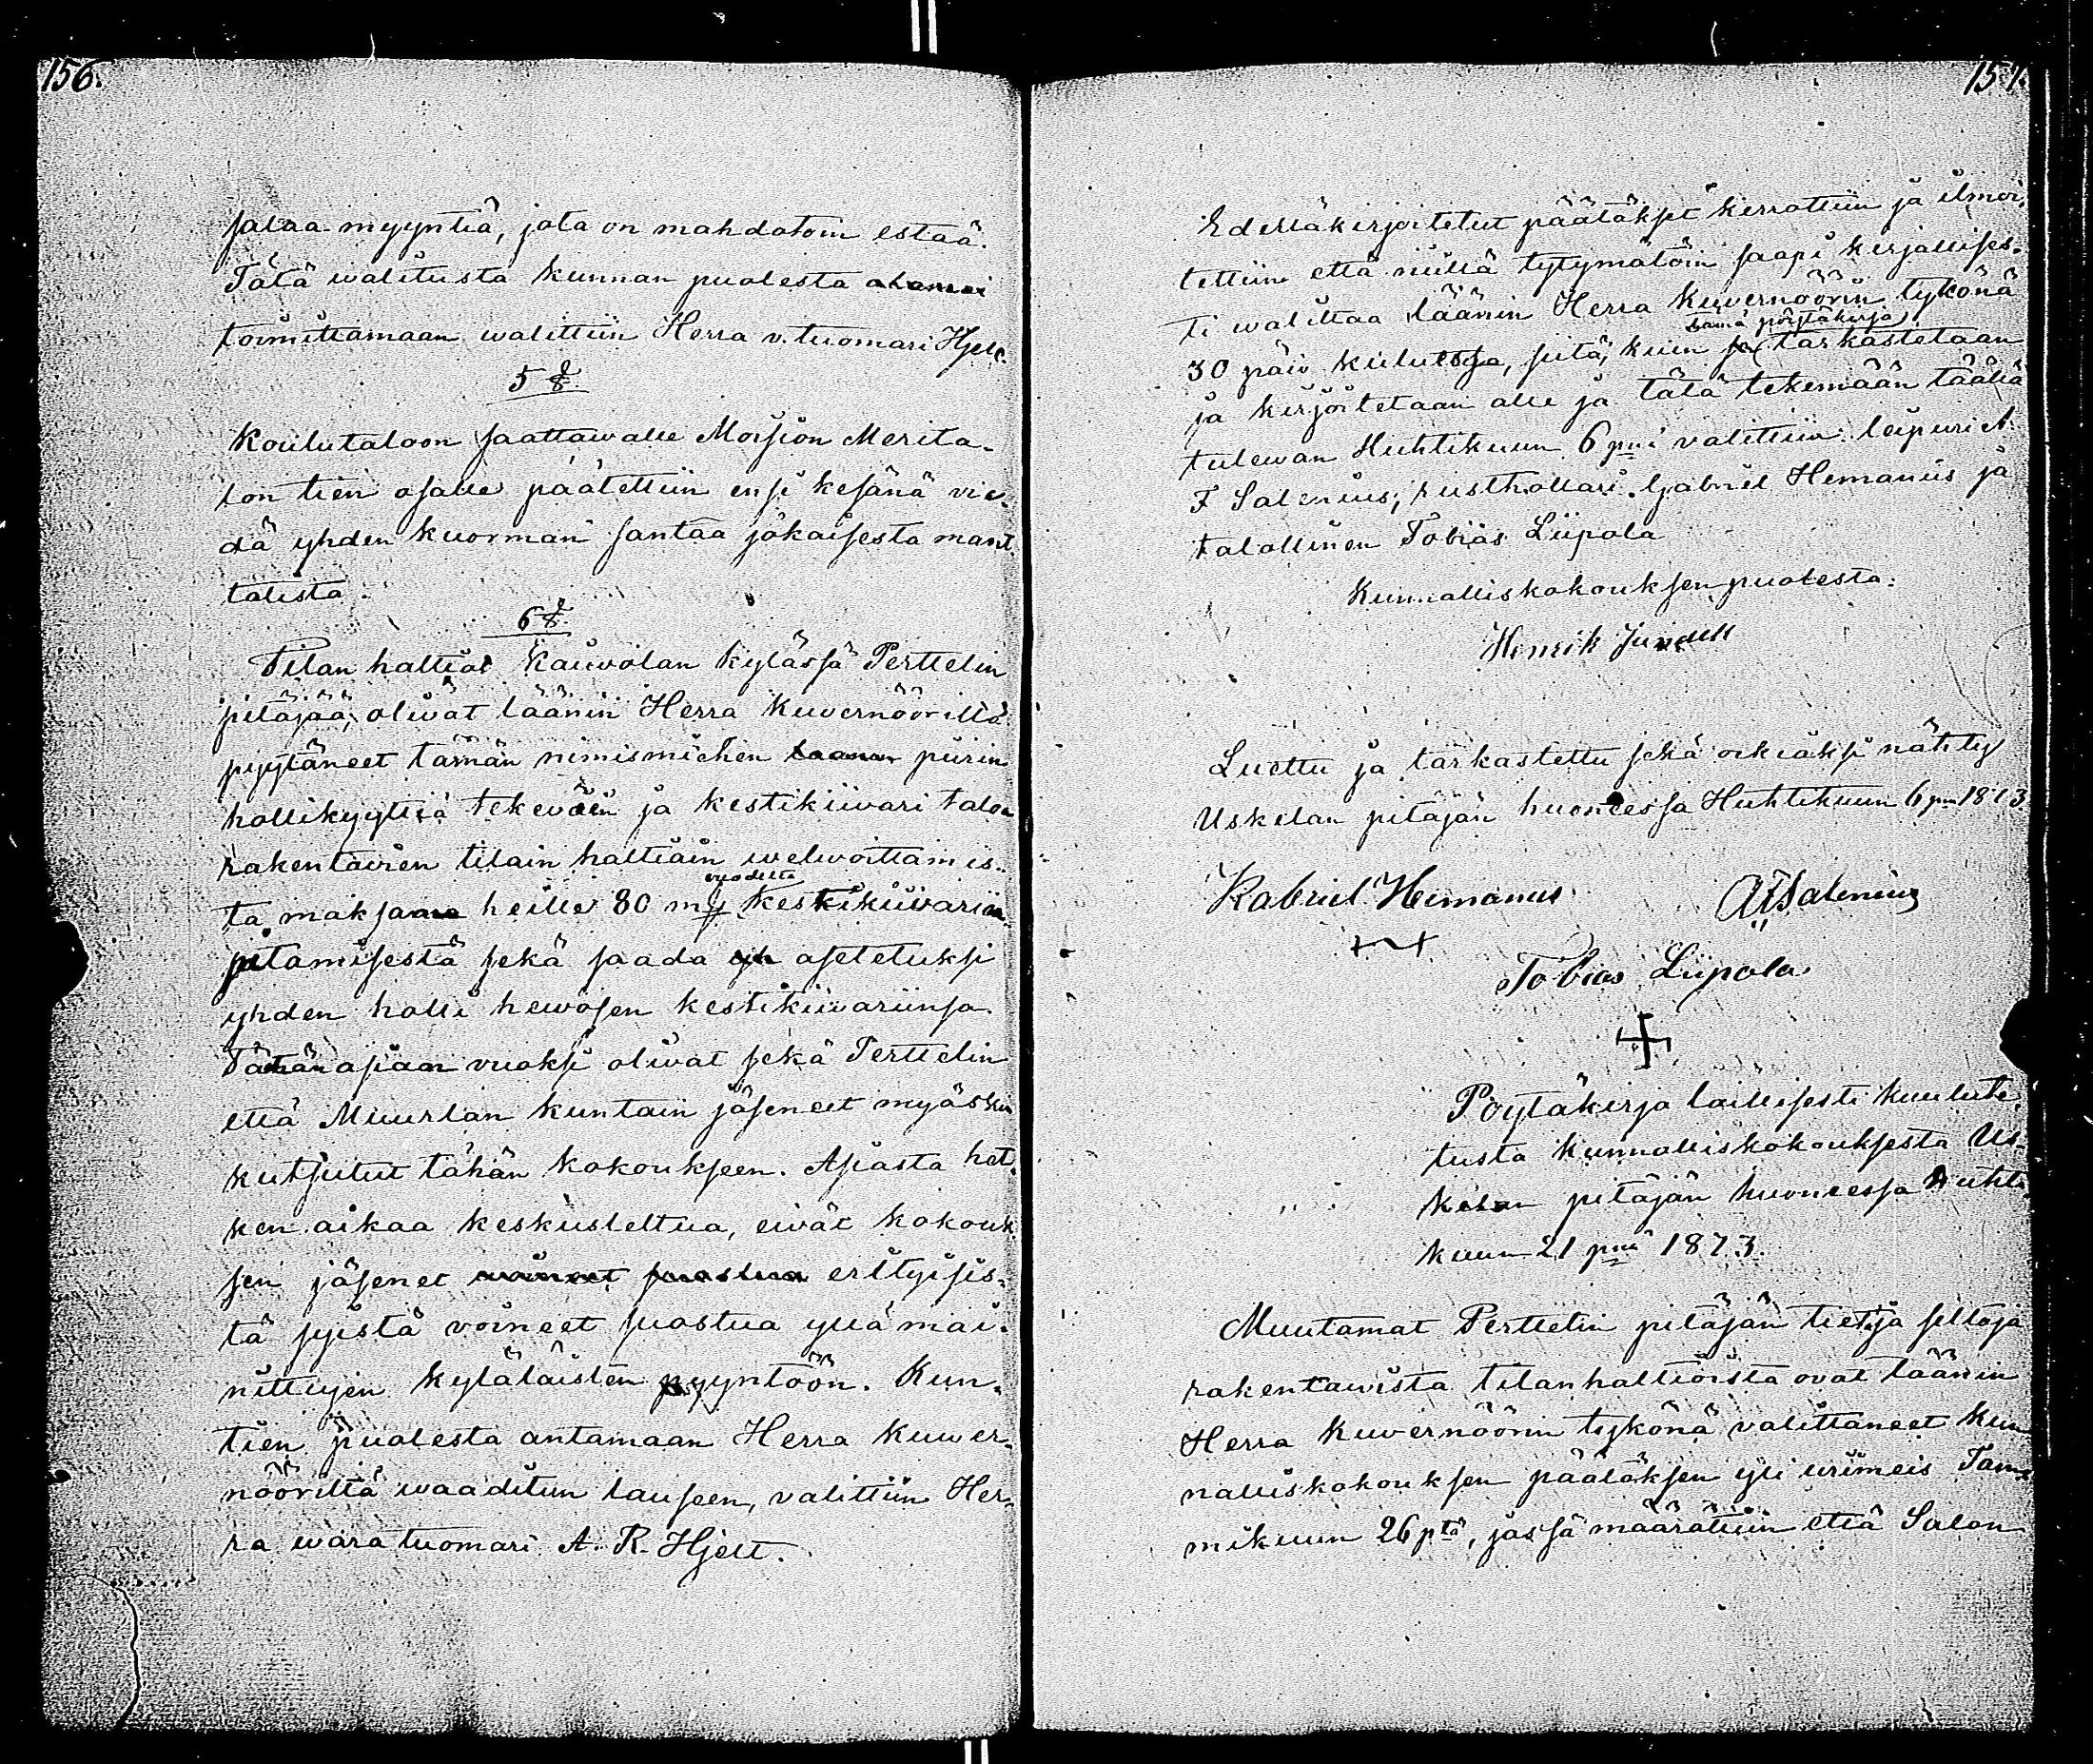 156.
salaa myyntiä, jota on mahdotoin estää.
Tätä walitusta kunnan puolesta
toimittamaan walittiin Herra v. tuomari Hjelt.
5 §
Koulutaloon saattawalle Moision Merita-
lon tien osalle päätettiin ensi kesänä vie-
dä yhden kuorman santaa jokaisesta mant-
talista.
6 §
Tilan haltiat Kaiwolan kylässä Perttelin
pitäjää, oliwat läänin Herra Kuvernöörillä
pyytäneet tämän nimismiehen piirin
hollikyytiä tekeväin ja kestikiiwari taloa
rakentawien tilain haltiain welwoittamis-
vuodelta
ta maksaa heille 80 my kestikiiwarin
pitämisestä sekä saada asetetuksi
yhden holli hewosen kestikiiwariinsa.
Tämän asian vuoksi oliwat sekä Perttelin
että Muurlan kuntain jäseneet myöskin
kutsutut tähän kokoukseen. Asiasta het-
ken aikaa keskusteltua, eiwät kokouk-
sen jäsenet woineet suostua erityisis-
tä syistä voineet suostua yllä mai-
nittujen kyläläisten pyyntöön. Kun-
tien puolesta antamaan Herra Kuwer-
nööriltä waaditun lauseen, valittiin Her-
ra wara tuomari A. R. Hjelt.
157.
Edelläkirjoitetut päätökset kerrottiin ja ilmoi-
tettiin että niillä tytymätöin saapi kirjallises-
ti walittaa läänin Herra Kuvernöörin tykönä
tämä pöytäkirja
30 päiv kuluessa, siitä, kuin se tarkastetaan
ja kirjoitetaan alle ja tätä tekemään täällä
tulewan Huhtikuun 6 pnä valittiin leipuri A.
F Salenius, rusthollari Gabriel Hemanus ja
talollinen Tobias Liipola
Kunnalliskokouksen puolesta:
Henrik Jundell
Luettu ja tarkastettu sekä oikiaksi nähty
Uskelan pitäjän huoneessa Huhtikuun 6 pnä 1873
Kabriel Hemanus
AFSalenius
Tobias Liipola
Pöytäkirja laillisesti kuulute-
tusta kunnalliskokouksesta Us-
kelan pitäjän huoneessa Huhti-
kuun 21 pnä 1873.
Muutamat Perttelin pitäjän tietä ja siltoja
rakentawista tilanhaltioista ovat läänin
Herra Kuvernöörin tykönä valittaneet kun
nalliskokouksen päätöksen yli wiimeis Tam-
mikuun 26 ptä, jossa määrättiin että Salon